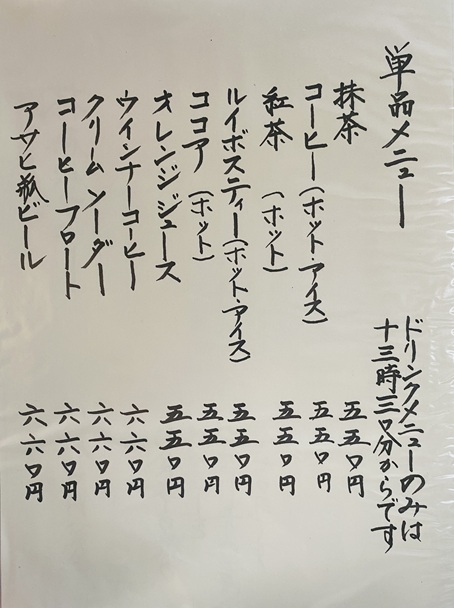 単品メニュー
ドリンクメニューのみは
十三時三〇分からです
抹茶 五五〇円
コーヒー(ホット・アイス) 五五〇円
紅茶 (ホット) 五五〇円
ルイボスティー(ホット・アイス) 五五〇円
ココア (ホット) 五五〇円
オレンジジュース 五五〇円
ウインナーコーヒー 六六〇円
クリームソーダー 六六〇円
コーヒーフロート 六六〇円
アサヒ瓶ビール 六六〇円